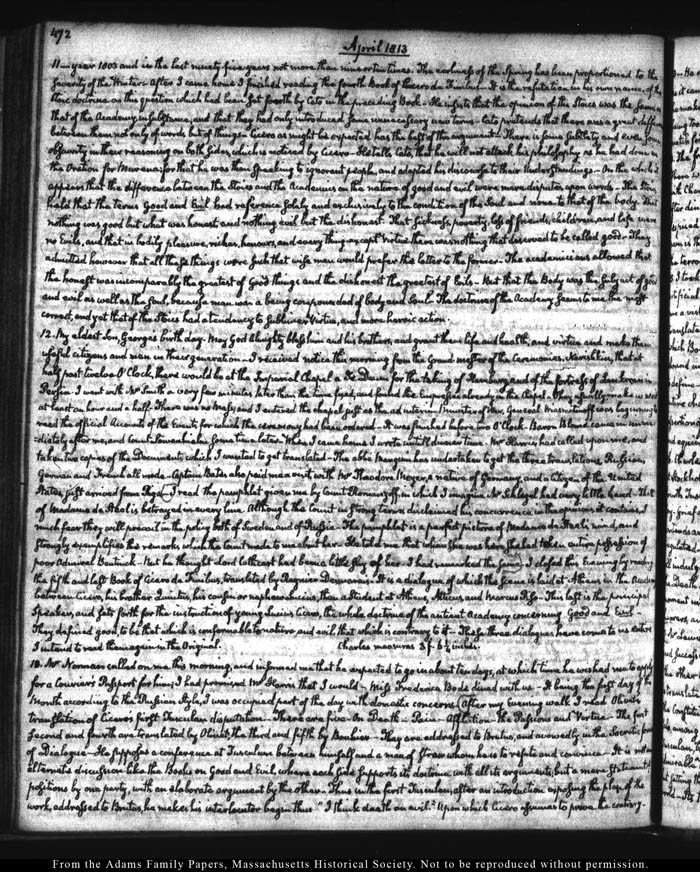 472
April 1813
11 — year 1803 and in the last ninety five years not more than nine or ten times. The earliness of the Spring has been proportioned to the
severity of the Winter. After I came home I finished reading the fourth Book of Cicero de Finibus. It is the refutation in his own name, of the
Stoic doctrine on this question which had been set forth by Cato in the preceding Book. He insists that the opinion of the Stoics was the same as
that of the Academy, in substance, and that they had only introduced some unnecessary new terms. Cato pretends that there was a great difference
between them not only of words but of things. Cicero as might be expected has the best of the argument. There is some subtlety and even some
obscurity in their reasoning on both sides, which is noticed by Cicero. He tells Cato that he will not attack his philosophy as he had done in
the Oration for Murena; for that he was then speaking to ignorant people, and adapted his discourse to their understandings. On the whole it
appears that the difference between the Stoics and the Academics on the nature of good and evil were mere disputes upon words. The Stoics
held that the terms Good and Evil had reference solely and exclusively, to the condition of the Soul and none to that of the body. That
nothing was good but what was honest and nothing evil but the dishonest. That sickness, poverty, loss of friends, children, and life were
no Evils, and that in bodily pleasure, riches, honours, and every thing except Virtue there was nothing that deserved to be called good. They
admitted however that all these things were such that wise men would prefer the latter to the former. The academicians allowed that
the honest was incomparably the greatest of Good things and the dishonest the greatest of Evils. But that the Body was the subject of good
and evil as well as the Soul, because man was a being compounded of body and Soul. The doctrine of the Academy seems to me the most
correct, and yet that of the Stoics had a tendency to sublimer Virtue, and more heroic action.
12. My eldest Son, George's birth day. May God Almighty bless him and his brothers, and grant them life and health, and virtue and make them
useful citizens and men in their generation. I received notice this morning from the Grand master of the Ceremonies, Narishkin, that at
half past twelve O'Clock, there would be at the Imperial Chapel a Te Deum for the taking of Hamburg, and of the fortress of Lenkoran in
Persia. I went with Mr Smith a very few minutes later than the time fixed, and found the Empresses already in the Chapel. They usually make us wait
at least an hour and a half. There was no Mass, and I entered the chapel just as the ad interim Minister of War, General was beginning to
read the official Account of the Events for which the ceremony had been ordered. It was finished before two O'Clock. Baron Blome came in
diately after me, and Count some time later. When I came home I wrote until dinner time. Mr Harris had called upon me, and
taken two copies of the Documents which I wanted to get translated. The abbé has undertaken to get the three translations, Russian,
German and French all made. Captain Bates also paid me a visit with Mr Theodore Meyer, a native of Germany, and a citizen of the United
States, just arrived from I read the pamphlet given me by Count Romanzoff, in which I imagine Mr Schlegel had very little hand. That
of Madame de Stael is betrayed in every line. Although the Count in strong terms disclaimed his concurrence with opinions it contained
much fear they will prevail in the policy both of Sweden and of Russia. The pamphlet is a perfect picture of Madame de Stael's mind, and
strongly exemplifies the remarks which the Count made to me about her. He told me that when she was here she had taken entire possession of
poor Admiral Bentinck. But he thought Lord Cathcart had been a little shy of her. I had remarked the same. I closed his Evening by reading
the fifth and last Book of Cicero de Finibus, translated by Regnier Desmarais. It is a dialogue of which the scene is laid at Athens in the Academy
between Cicero, his brother Quintus, his cousin or nephew Lucius, then a Student at Athens, Atticus and Marcus Piso. This last is the principal
Speaker, and sets forth for the instruction of young Lucius Cicero, the whole doctrine of the ancient Academy concerning Good and Evil.
They defined good, to be that which is conformable to nature and evil, that which is contrary to it. These three dialogues have come to us entire
I intend to read them again in the Original. Charles measures 3 f. 6½ inches.
13. Mr Norman called on me this morning, and informed me that he expected to go in about ten days, at which time he wished me to apply
for a Courier's Passport for him; I had promised Mr Harris that I would. Miss Frederica Bode dined with us. It being the first day of the
Month according to the Russian Style, I was occupied part of the day with domestic concerns. After my evening walk I read Olivet's
translation of Cicero's first Tusculan disputation. There are five. On Death. Pain. Affliction. The Passions and Virtue. The first
second and fourth are translated by Olivet; the third and fifth by Bouhier. They are addressed to Brutus, and avowedly in the Socratic form
of Dialogue. He supposes a conference at Tusculum between himself and a man of straw whom he is to refute and convince. It is not an
alternate discussion like the Books on Good and Evil, where each side supports its doctrine with all its arguments, but a mere statement of
positions by one party, with an elaborate argument by the other. Thus in the first Tusculan, after an introduction exposing the plan of the
work, addressed to Brutus, he makes his interlocutor begin thus "I think death an evil." Upon which Cicero assumes to prove the contrary.
From the Adams Family Papers, Massachusetts Historical Society. Not to be reproduced without permission.